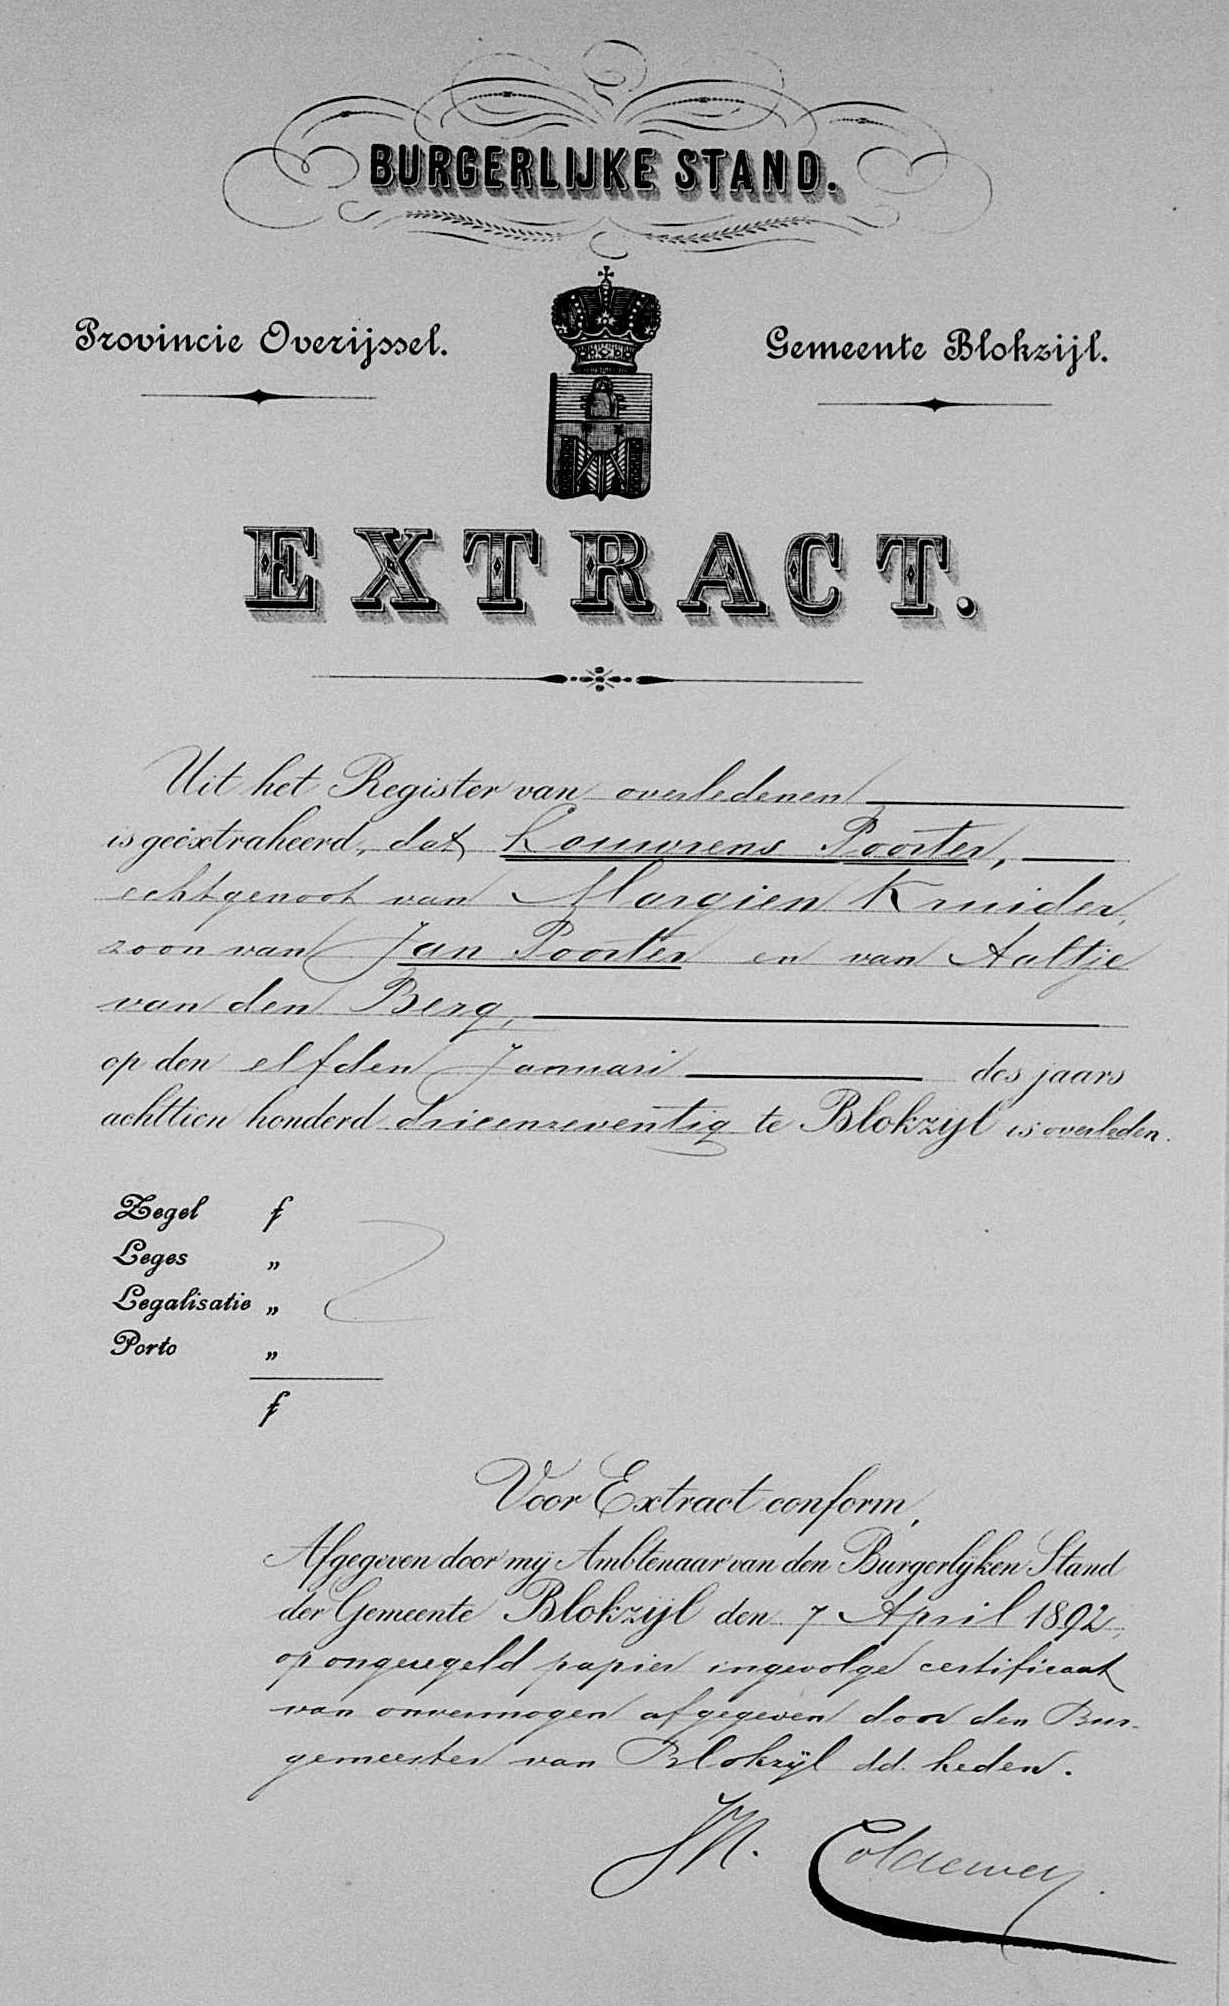 BURGERLIJKE STAND.
Provincie Overijssel.
Gemeente Blokzijl.
EXTRACT.
Uit het Register van overledenen
is geëxtraheerd, dat Louwrens Poorter,
echtgenoot van Margien Kruider,
zoon van Jan Poorter en van Aaltje
van den Berg,
op den elfden Januari des jaars
achttien honderd drieenzeventig te Blokzijl is overleden.
Zegel f
Leges „
Legalisatie „
Porto „
f
Voor Extract conform,
Afgegeven door mij Ambtenaar van den Burgerlijken Stand
der Gemeente Blokzijl den 7 April 1892,
op ongezegeld papier ingevolge certificaat
van onvermogen afgegeven door den Bur-
gemeester van Blokzijl dd. heden.
Coldewey.